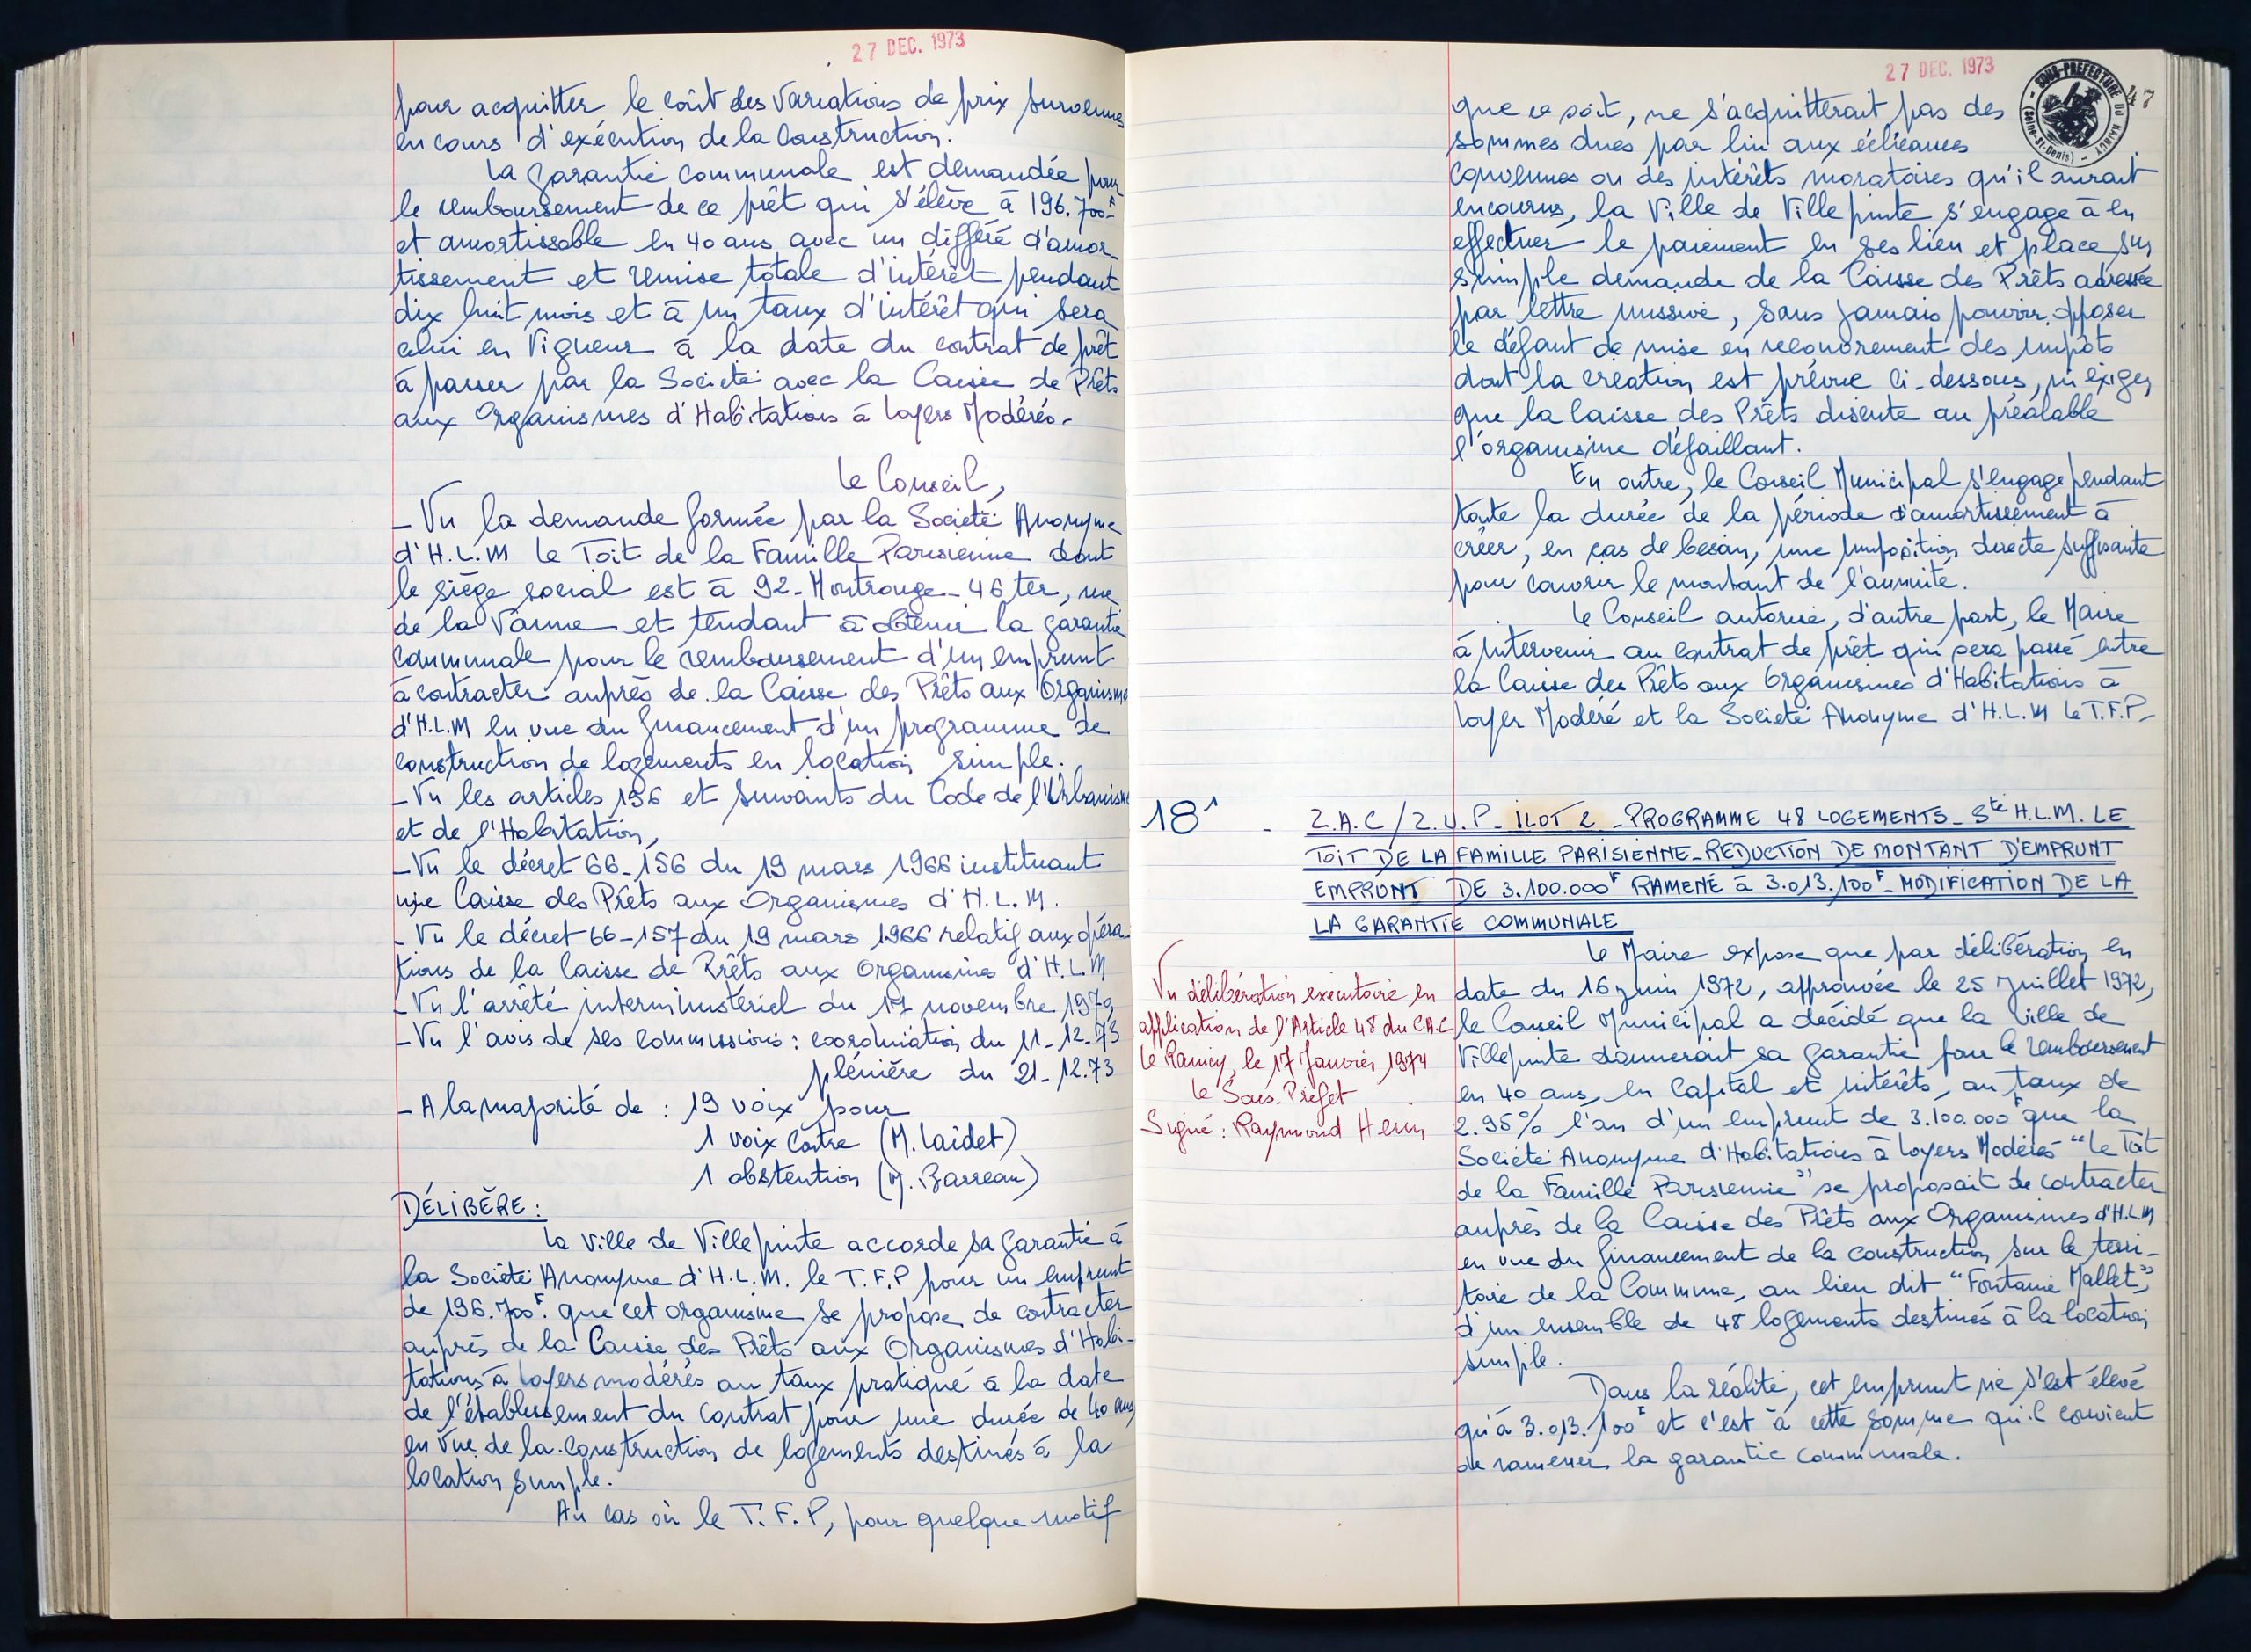 27 DEC. 1973
pour acquitter le coût des variations de prix survenues
en cours d'exécution de la construction.
La garantie communale est demandée pour
le remboursement de ce prêt qui s'élève à 196.700F
et amortissable en 40 ans avec un différé d'amor-
tissement et remise totale d'intérêt pendant
dix huit mois et à un taux d'intérêt qui sera
celui en vigueur à la date du contrat de prêt
à passer par la Société avec la Caisse de Prêts
aux Organismes d'Habitations à Loyers Modérés.
Le Conseil,
- Vu la demande formée par la Société Anonyme
d'H.L.M Le Toit de la Famille Parisienne dont
le siège social est à 92 - Montrouge - 46 ter, rue
de la Vanne et tendant à obtenir la garantie
communale pour le remboursement d'un emprunt
à contracter auprès de la Caisse des Prêts aux Organismes
d'H.L.M en vue du financement d'un programme de
construction de logements en location simple.
- Vu les articles 196 et suivants du Code de l'Urbanisme
et de l'Habitation,
- Vu le décret 66-156 du 19 mars 1966 instituant
une Caisse des Prêts aux Organismes d'H.L.M.
- Vu le décret 66-157 du 19 mars 1966 relatif aux opéra-
tions de la Caisse de Prêts aux Organismes d'H.L.M
- Vu l'arrêté interministériel du 17 novembre
- Vu l'avis de ses Commissions : coordination du 11-12-73
plénière du 21-12.73
- A la majorité de : 19 voix pour
1 voix contre (M. Laidet)
1 abstention (M. Barreau)
DÉLIBÈRE :
La Ville de Villepinte accorde sa garantie à
la Société Anonyme d'H.L.M. le T.F.P pour un emprunt
de 196.700F. que cet organisme se propose de contracter
auprès de la Caisse des Prêts aux Organismes d'Habi-
tations à loyers modérés au taux pratiqué à la date
de l'établissement du contrat pour une durée de 40 ans
en vue de la construction de logements destinés à la
location simple.
Au cas où le T.F.P, pour quelque motif
27 DEC. 1973
SOUS-PREFECTURE DU RAINCY
(Seine-St-Denis)
47
que ce soit, ne s'acquitterait pas des
sommes dues par lui aux échéances
convenues ou des intérêts moratoires qu'il aurait
encourus, la Ville de Villepinte s'engage à en
effectuer le paiement en ses lieu et place sur
simple demande de la Caisse des Prêts adressée
par lettre missive, sans jamais pouvoir opposer
le défaut de mise en recouvrement des impôts
dont la création est prévue ci-dessous, ni exiger
que la Caisse des Prêts discute au préalable
l'organisme défaillant.
En outre, le Conseil Municipal s'engage pendant
toute la durée de la période d'amortissement à
créer, en cas de besoin, une imposition directe suffisante
pour couvrir le montant de l'annuité.
Le Conseil autorise, d'autre part, le Maire
à intervenir au contrat de prêt qui sera passé entre
la Caisse des Prêts aux Organismes d'Habitations à
Loyer Modéré et la Société Anonyme d'H.L.M le T.F.P-
18¹ - Z.A.C / Z.U.P - ILOT 2 - PROGRAMME 48 LOGEMENTS - Sté H.L.M. LE
TOIT DE LA FAMILLE PARISIENNE - REDUCTION DE MONTANT D'EMPRUNT
EMPRUNT DE 3.100.000F RAMENÉ à 3.013.100F - MODIFICATION DE LA
LA GARANTIE COMMUNALE
Vu délibération exécutoire en
application de l'Article 48 du C.A.C
Le Raincy, le 17 Janvier 1974
Le Sous-Préfet
Signé : Raymond
Le Maire expose que par délibération en
date du 16 juin 1972, approuvée le 25 juillet 1972,
le Conseil Municipal a décidé que la Ville de
Villepinte donnerait sa garantie pour le remboursement
en 40 ans, en Capital et intérêts, au taux de
2.95% l'an d'un emprunt de 3.100.000F que la
Société Anonyme d'Habitations à Loyers Modérés "Le Toit
de la Famille Parisienne" se proposait de contracter
auprès de la Caisse des Prêts aux Organismes d'H.L.M
en vue du financement de la construction sur le terri-
toire de la Commune, au lieu dit "Fontaine Mallet",
d'un ensemble de 48 logements destinés à la location
simple.
Dans la réalité, cet emprunt ne s'est élevé
qu'à 3.013.100F et c'est à cette somme qu'il convient
de ramener la garantie communale.